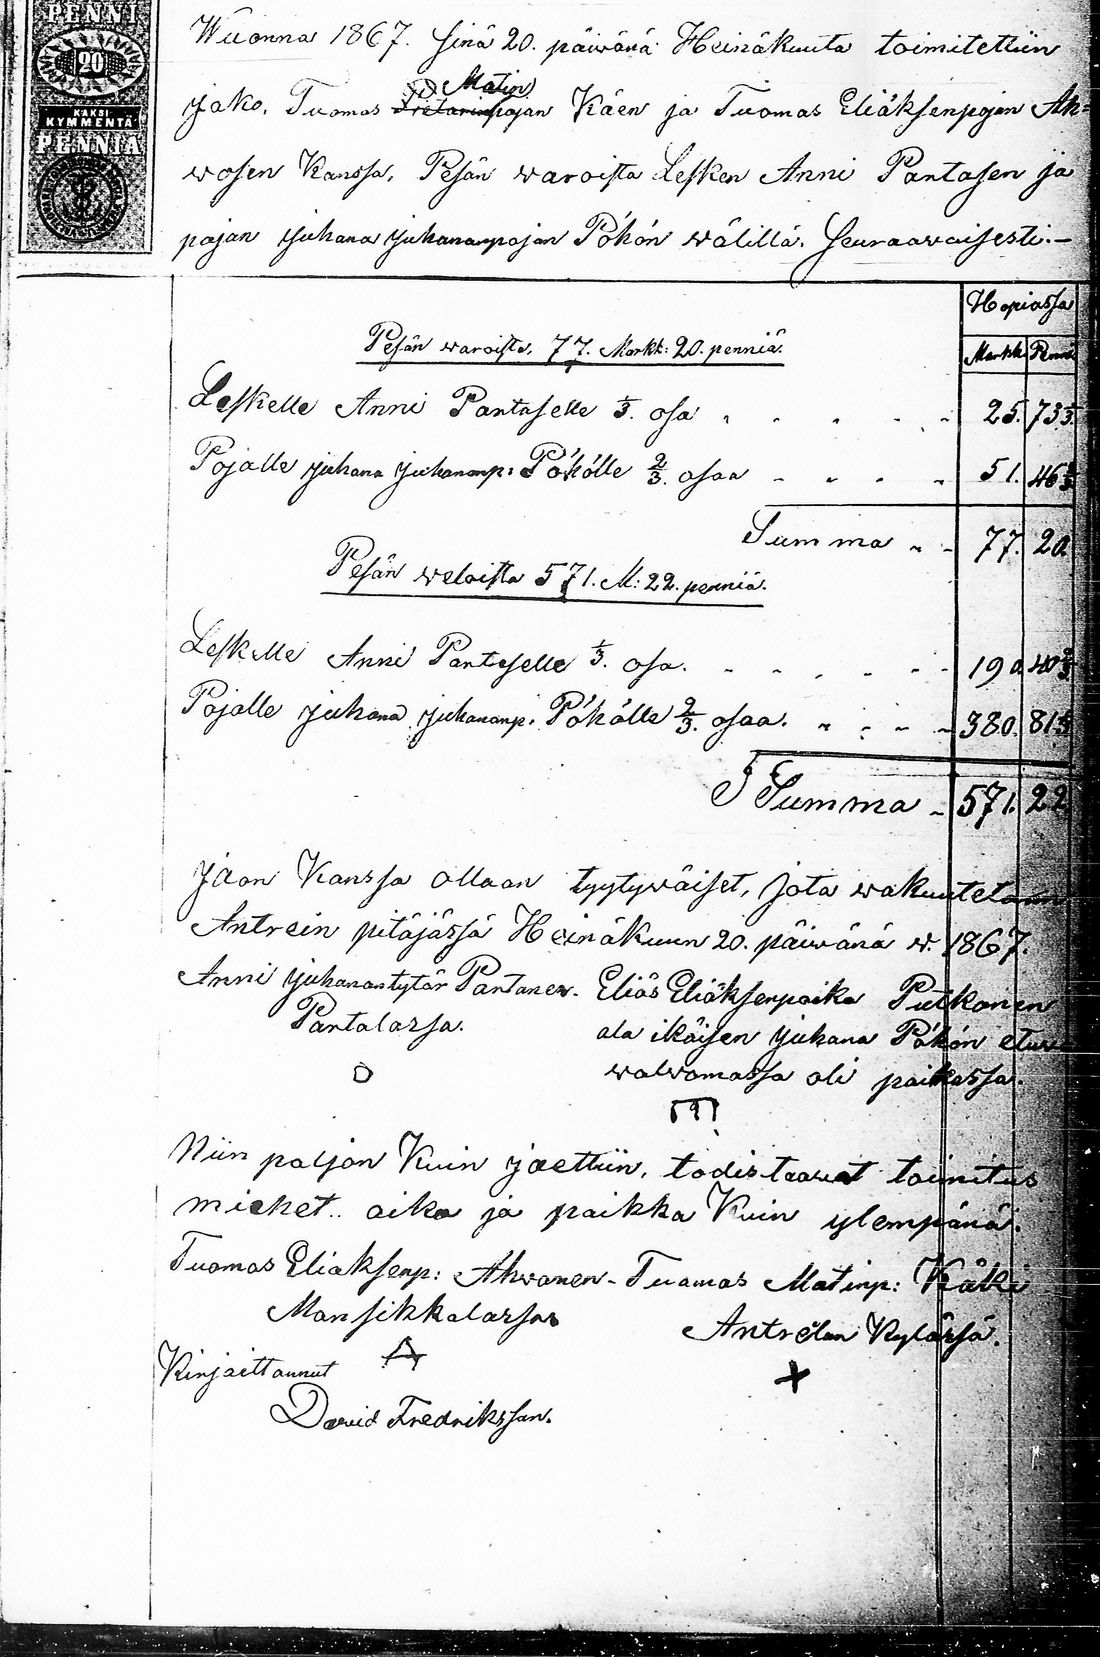 PENNI
20
KAKSI
KYMMENTÄ
PENNIÄ
Wuonna 1867. Sinä 20. päiwänä Heinäkuuta toimitettiin
Matin
jako, Tuomas pojan Käen ja Tuomas Eliäksenpojan Ah=
wosen Kanssa, Pesän waroista Lesken Anni Pantasen ja
pojan Juhana Juhananpojan Pökön wälillä. Seuraawaisesti.—
Hopiassa
Markk Penni
Pesän waroista, 77. Markk: 20. penniä.
Leskelle Anni Pantaselle 1/3. osa 25. 73 1/3.
Pojalle Juhana Juhananp: Pökölle 2/3. osaa 51. 46 2/3
Summa 77. 20
Pesän weloista 571. M: 22. penniä.
Leskelle Anni Pantaselle 1/3. osa. 190. 40 2/3
Pojalle Juhana Juhananp. Pökölle 2/3. osaa. 380. 81 1/3
Summa 571. 22
Jaon Kanssa ollaan tyytywäiset, jota wakuutetaan
Antrein pitäjässä Heinäkuun 20. päiwänä w. 1867.
Anni Juhanantytär Pantanen. Eliäs Eliäksenpoika Putkonen
Pantalassa. ala ikäisen Juhana Pökön etuu
walwomassa oli paikassa.
Niin paljon Kuin jaettiin, todistaawat toimitus
miehet.. aika ja paikka Kuin ylempänä.
Tuomas Eliaksenp: Ahwonen - Tuomas Matinp: Käki
Mansikkalassa Antrëlan Kylässä.
Kirjoittannut
David Fredriksson.